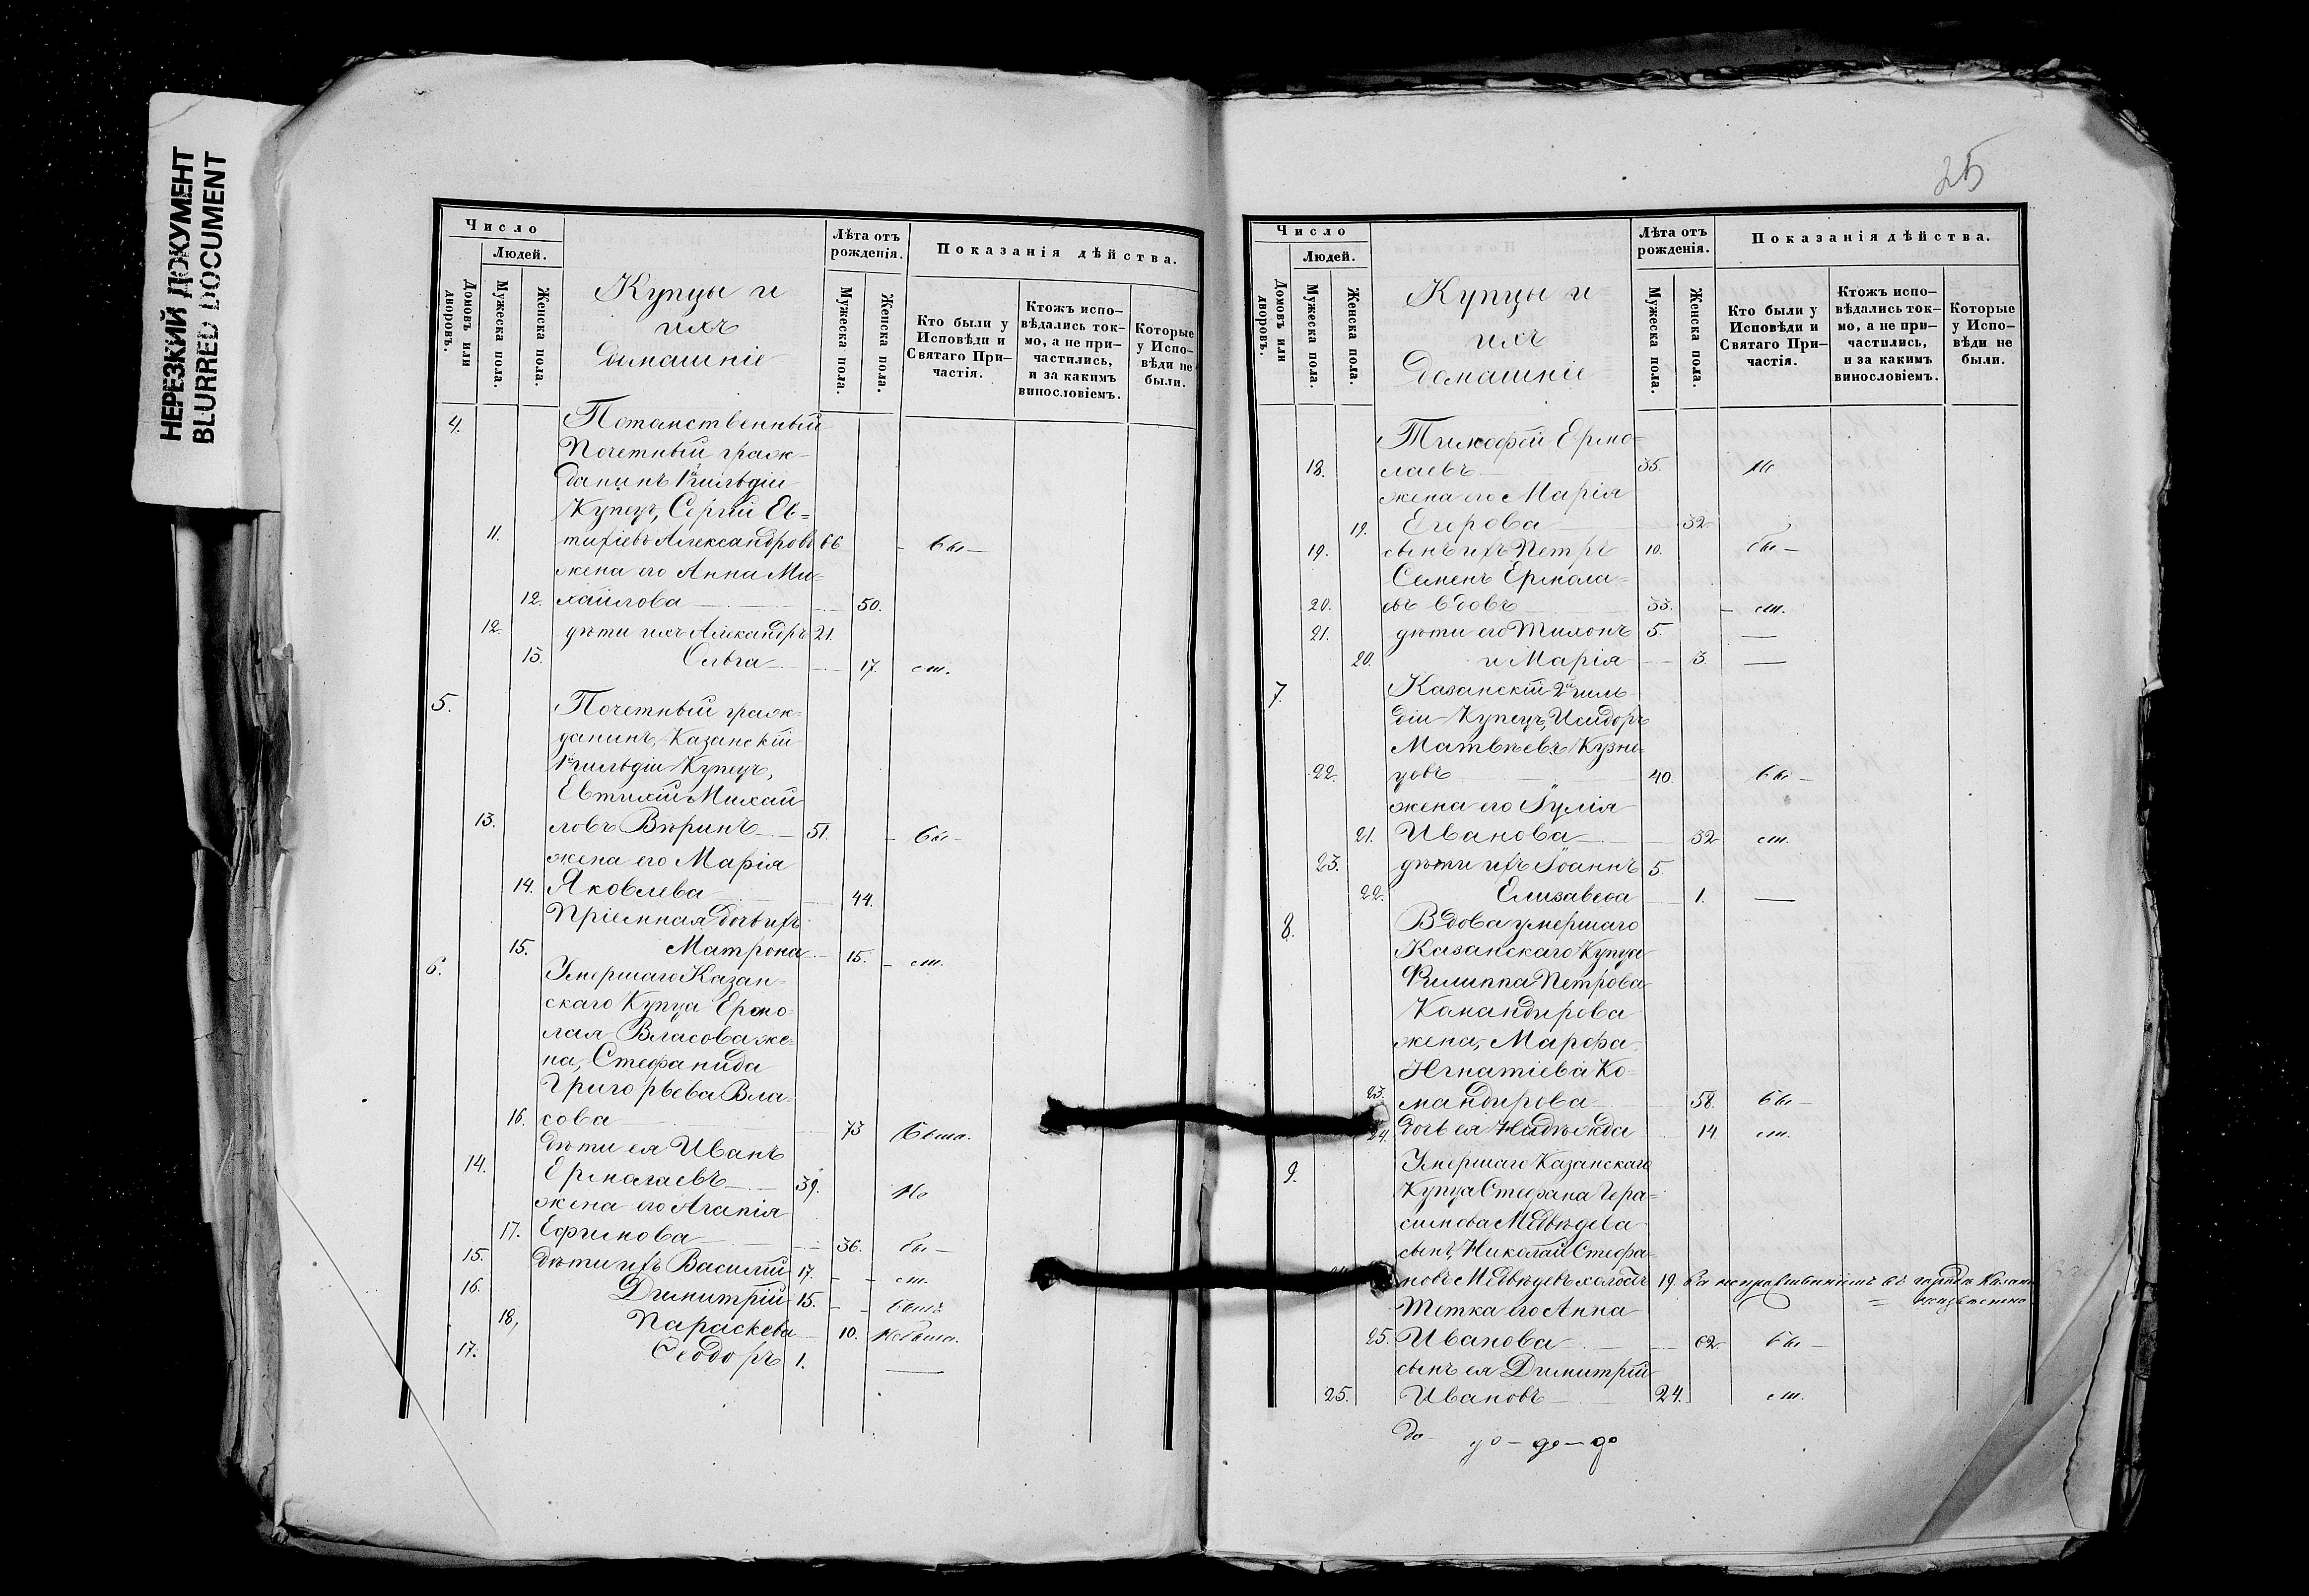 НЕРЕЗКИЙ ДОКУМЕНТ
BLURRED DOCUMENT
Число
Людей.
Домовъ или дворовъ.
Мужеска пола.
Женска пола.
Купцы и
ихъ
домашніе
Лѣта отъ рожденія.
Мужеска пола.
Женска пола.
Показанія дѣйства.
Кто были у Исповѣди и Святаго При-частія.
Ктожъ испо-вѣдались ток-мо, а не при-частились, и за какимъ винословіемъ.
Которые у Испо-вѣди не были.
4. Потомственный
Почетный граж-
данинъ 1й гильдіи
Купецъ, Сергій Ев=
11. тихіевъ Александровъ 66 бы—
жена его Анна Ми=
12. хайлова 50.
12. дѣти ихъ Александръ 21.
13. Ольга 17. ли.
5. Почетный граж-
данинъ, Казанскій
1й гильдіи Купецъ,
Евтихій Михай
13. ловъ Вѣринъ 51. бы—
жена его Марія
14. Яковлева 44.
Пріемная дочь ихъ
15. Матрона 15. ли.
6. Умершаго Казан-
скаго Купца Ермо-
лая Власова же-
на, Стефанида
Григорьева Вла-
16. сова 73 была.
дѣти ея Иванъ
14. Ермолаевъ 39. Не
жена его Агапія
17. Ефимова 36. бы—
15. дѣти ихъ Василій 17. ли.
16. Димитрій 15. былъ
18, Параскева 10. не была.
17. Ѳеодоръ 1. —
25
Число
Людей.
Домовъ или дворовъ.
Мужеска пола.
Женска пола.
Купцы и
ихъ
домашніе
Лѣта отъ рожденія.
Мужеска пола.
Женска пола.
Показанія дѣйства.
Кто были у Исповѣди и Святаго При-частія.
Ктожъ испо-вѣдались ток-мо, а не при-частились, и за какимъ винословіемъ.
Которые у Испо-вѣди не были.
Тимофей Ермо-
18. лаевъ 35. Не
жена его Марія
19. Егорова 32
19. сынъ ихъ Петръ 10. бы—
Семенъ Ермола-
20. евъ вдовъ 33. ли.
21. дѣти его Тихонъ 5. —
20. и Марія 3. —
7. Казанскій 2й гиль
діи Купецъ, Исидоръ
Матвѣевъ Кузне-
22. цовъ 40. бы—
жена его Іулія
21. Иванова 32 ли.
23. дѣти ихъ Іоаннъ 5.
22. Елизавеѳа 1. —
8. Вдова умершаго
Казанскаго Купца
Филиппа Петрова
Командирова
жена, Марѳа
Игнатіева Ко-
23. мандирова 58. бы—
24. дочь ея Надежда 14 ли.
9. Умершаго Казанскаго
Купца Стефана Гера=
симова Медвѣдева
сынъ, Николай Стефа-
новъ Медвѣдевъ холостъ 19.
Тетка его Анна
25. Иванова 62 бы—
сынъ ея Димитрій
25. Ивановъ 24. ли.